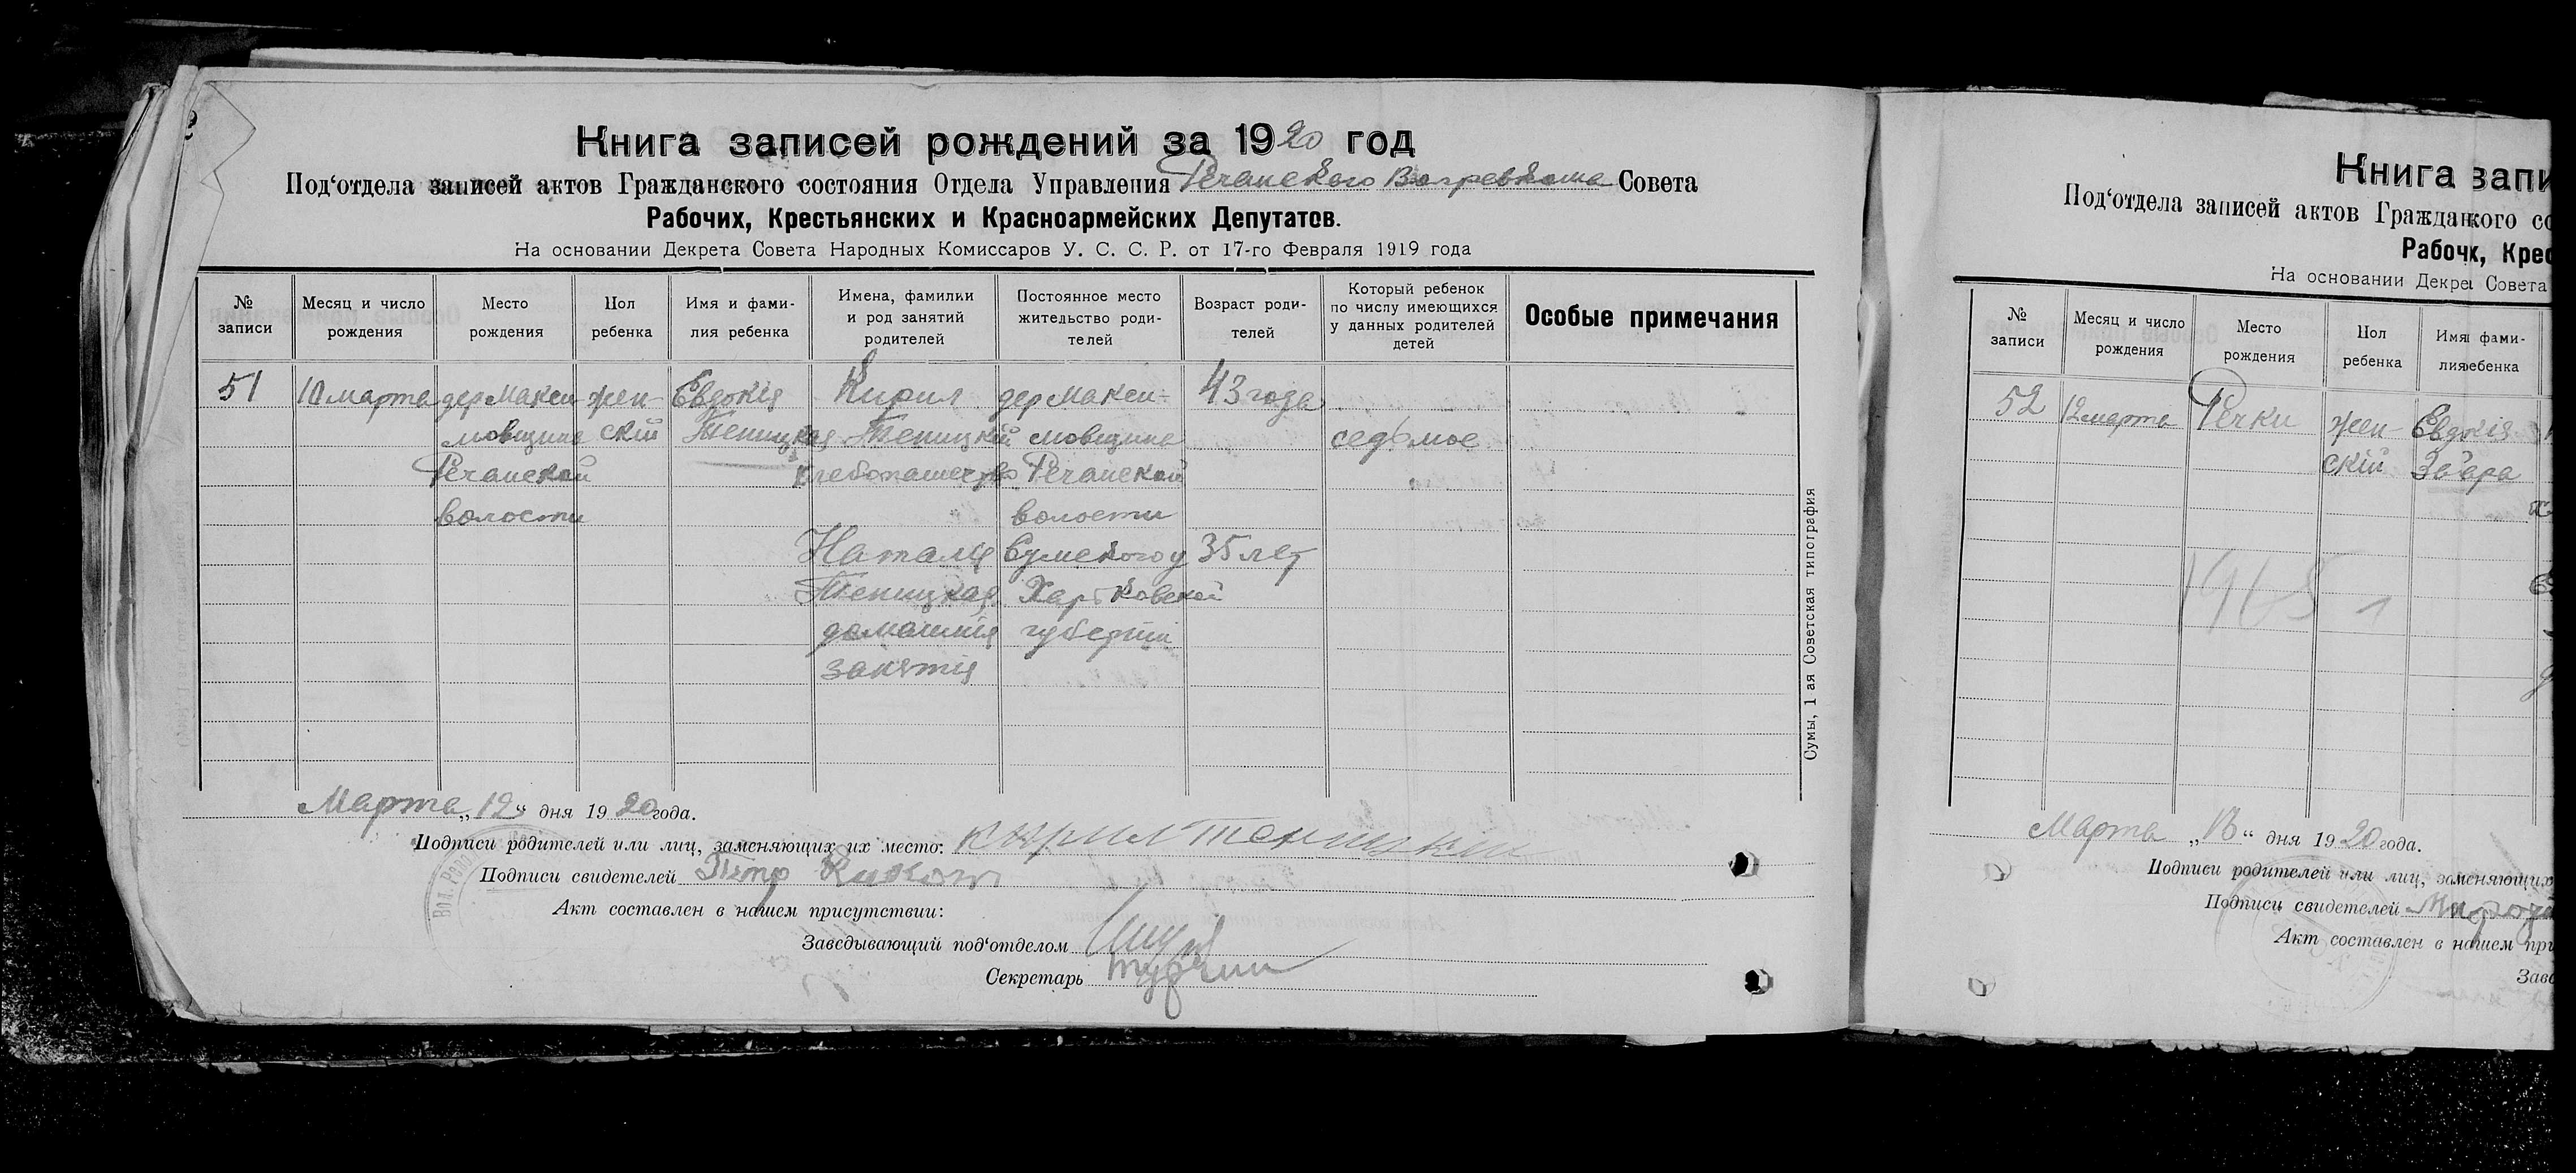 Книга записей рождений за 1920 год
Под‘отдела записей актов Гражданского состояния Отдела Управления Речанского Волревкома Совета
Рабочих, Крестьянских и Красноармейских Депутатов.
На основании Декрета Совета Народных Комиссаров У. С. С. Р. от 17-го Февраля 1919 года
№ записи
Месяц и число рождения
Место рождения
Пол ребенка
Имя и фами-
лия ребенка
Имена, фамилии
и род занятий
родителей
Постоянное место
жительство роди-
телей
Возраст роди-
телей
Который ребенок
по числу имеющихся
у данных родителей
детей
Особые примечания
51
10 марта
дер Макси
мовщине
Речанской
волости
жен-
скій
Евдокія
Теницкая
Кирил
Теницкій
хлебопашество
Наталія
Теницкая
домашнія
занятія
дер Макси-
мовщине
Речанской
волости
Сумского у
Харьковской
губерніи
43 года
35 лет
седьмое
Сумы, 1 ая Советская типография
Марта „12“ дня 1920 года.
Подписи родителей или лиц, заменяющих их место: Кирил Теницкий
Подписи свидетелей Петр
Акт составлен в нашем присутствии:
Заведывающий под‘отделом
Секретарь
Вол. Рево
Книга запи
Под‘отдела записей актов Граждан­кого со
Рабочх, Крес
На основании Декре Совета
№
записи
Месяц и число
рождения
Место
рождения
Пол
ребенка
Имя фами-
лия ребенка
52
12 марта
Речки
жен-
скій
Евдокія
1968
Марта „13“ дня 1920 года.
Подписи родителей или лиц, заменяющих
Подписи свидетелей
Акт составлен в нашем при
Заве